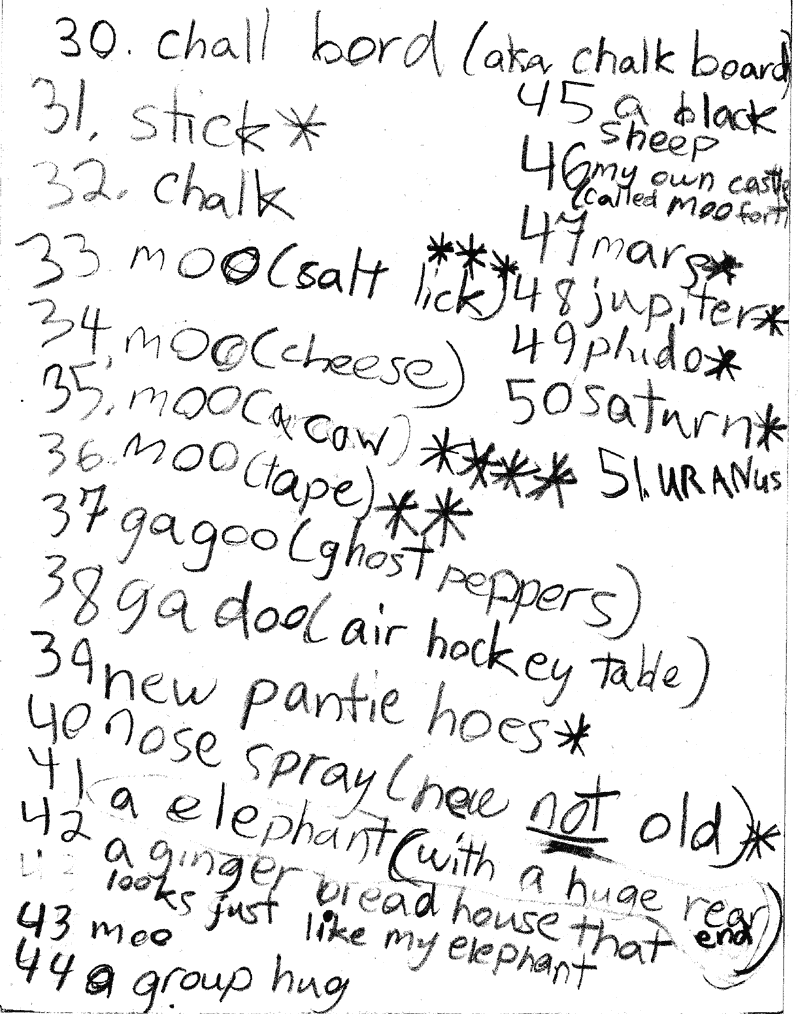 30. chall bord (aka chalk board)
31. stick*
32. chalk
33 moo (salt lick)***
34. moo (cheese)
35. moo (a cow)****
36 moo (tape)**
37 gagoo (ghost peppers)
38 ga doo (air hockey table)
39 new pantie hoes*
40 nose spray (new not old)*
41 a elephant (with a huge rear end)
42 a ginger bread house that
looks just like my elephant
43 moo
44 a group hug
45 a black
sheep
46 my own castle
(called moo fort)
47 mars*
48 jupiter*
49 phido*
50 saturn*
51. URANus